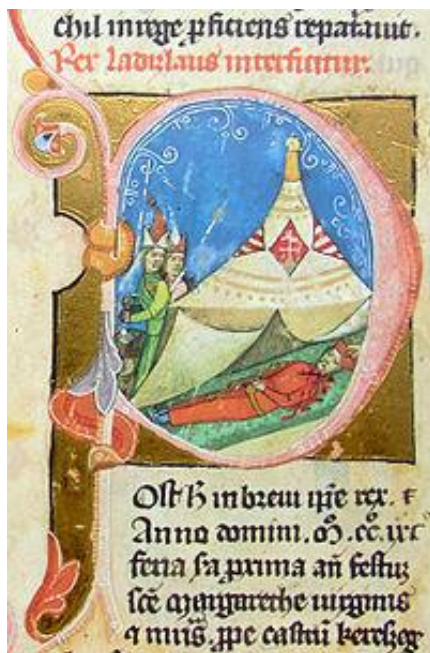 chil in rege proficiens reparavit.
Rex ladizlaus interficitur.
Post h in brevi ipse rex.
Anno domini. Mo. cco. lxc
feria prima an festuz
sce Margarethe virginis
prope castru kerezzeg